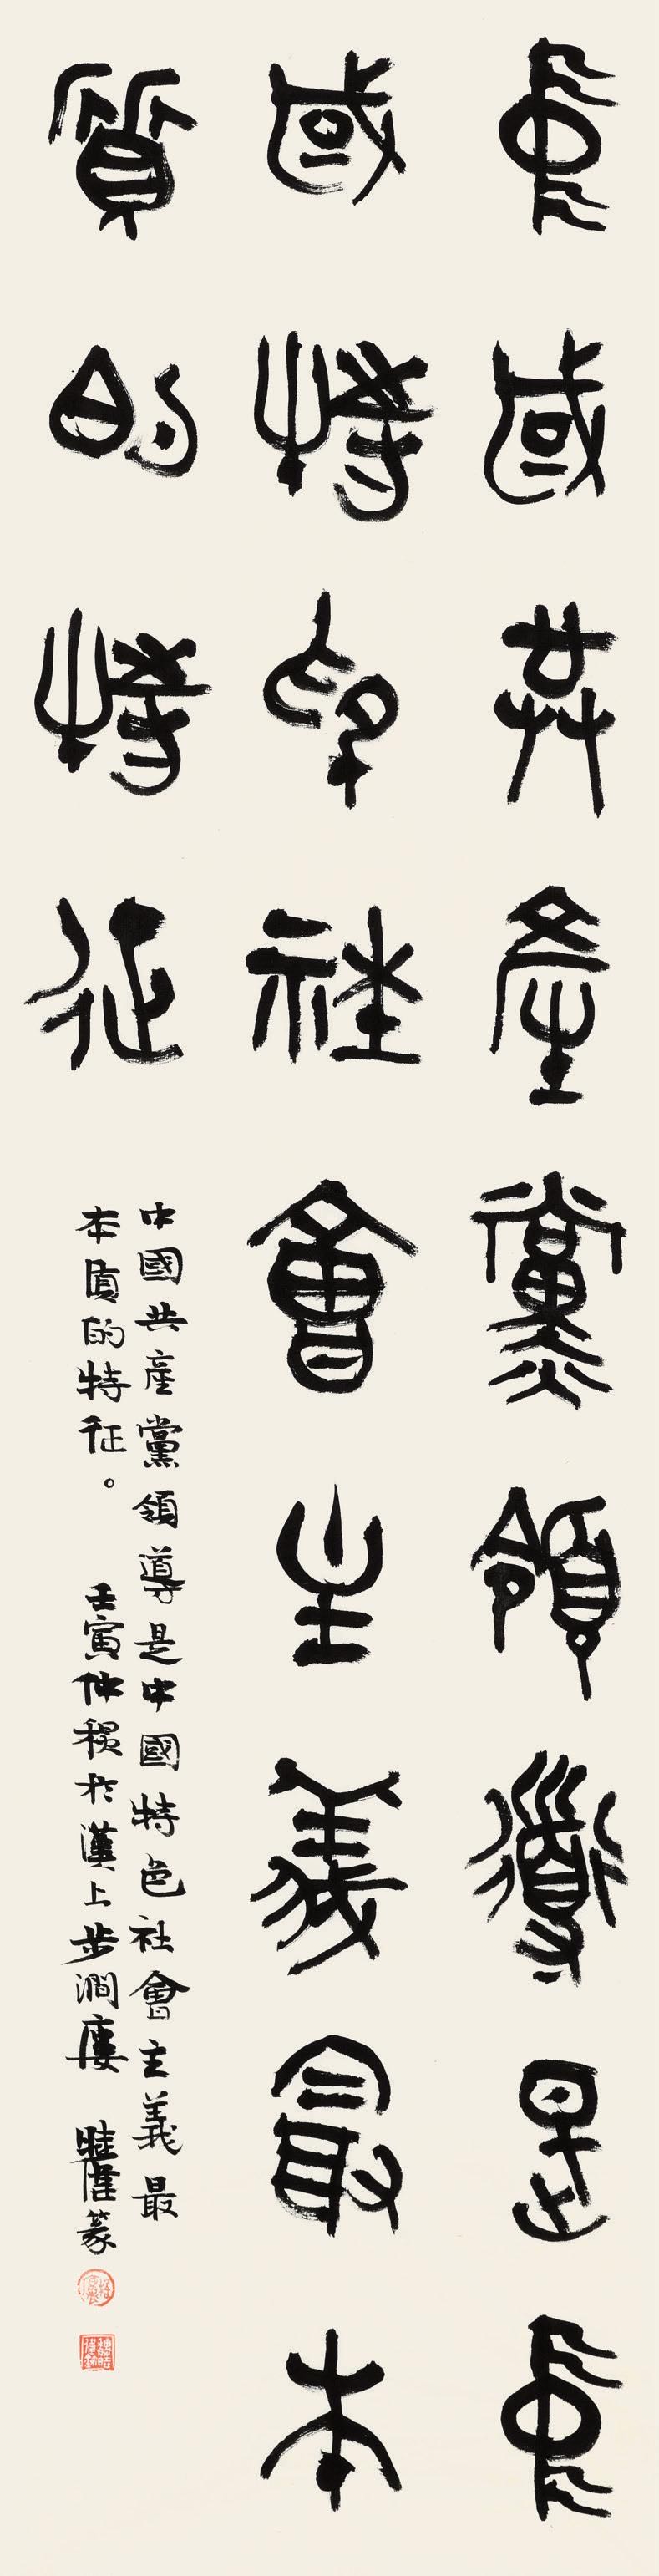 中國共產黨領導是中
國特色社會主義最本
質的特征
中國共產黨領導是中國特色社會主義最
本質的特征。 壬寅仲穐於漢上步澗廔 篆